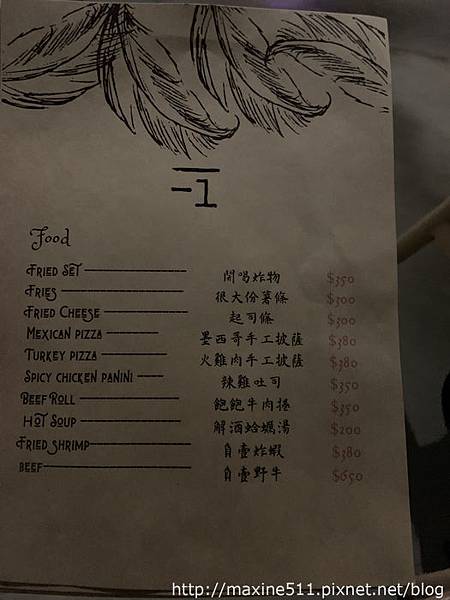 -1
Food
Fried Set 鬧喝炸物 $350
Fries 很大份薯條 $300
Fried Cheese 起司條 $300
Mexican pizza 墨西哥手工披薩 $380
Turkey pizza 火雞肉手工披薩 $380
Spicy chicken panini 辣雞吐司 $350
Beef Roll 飽飽牛肉捲 $350
Hot Soup 解酒蛤蠣湯 $200
Fried Shrimp 負壹炸蝦 $380
Beef 負壹野牛 $650
http://maxine511.pixnet.net/blog